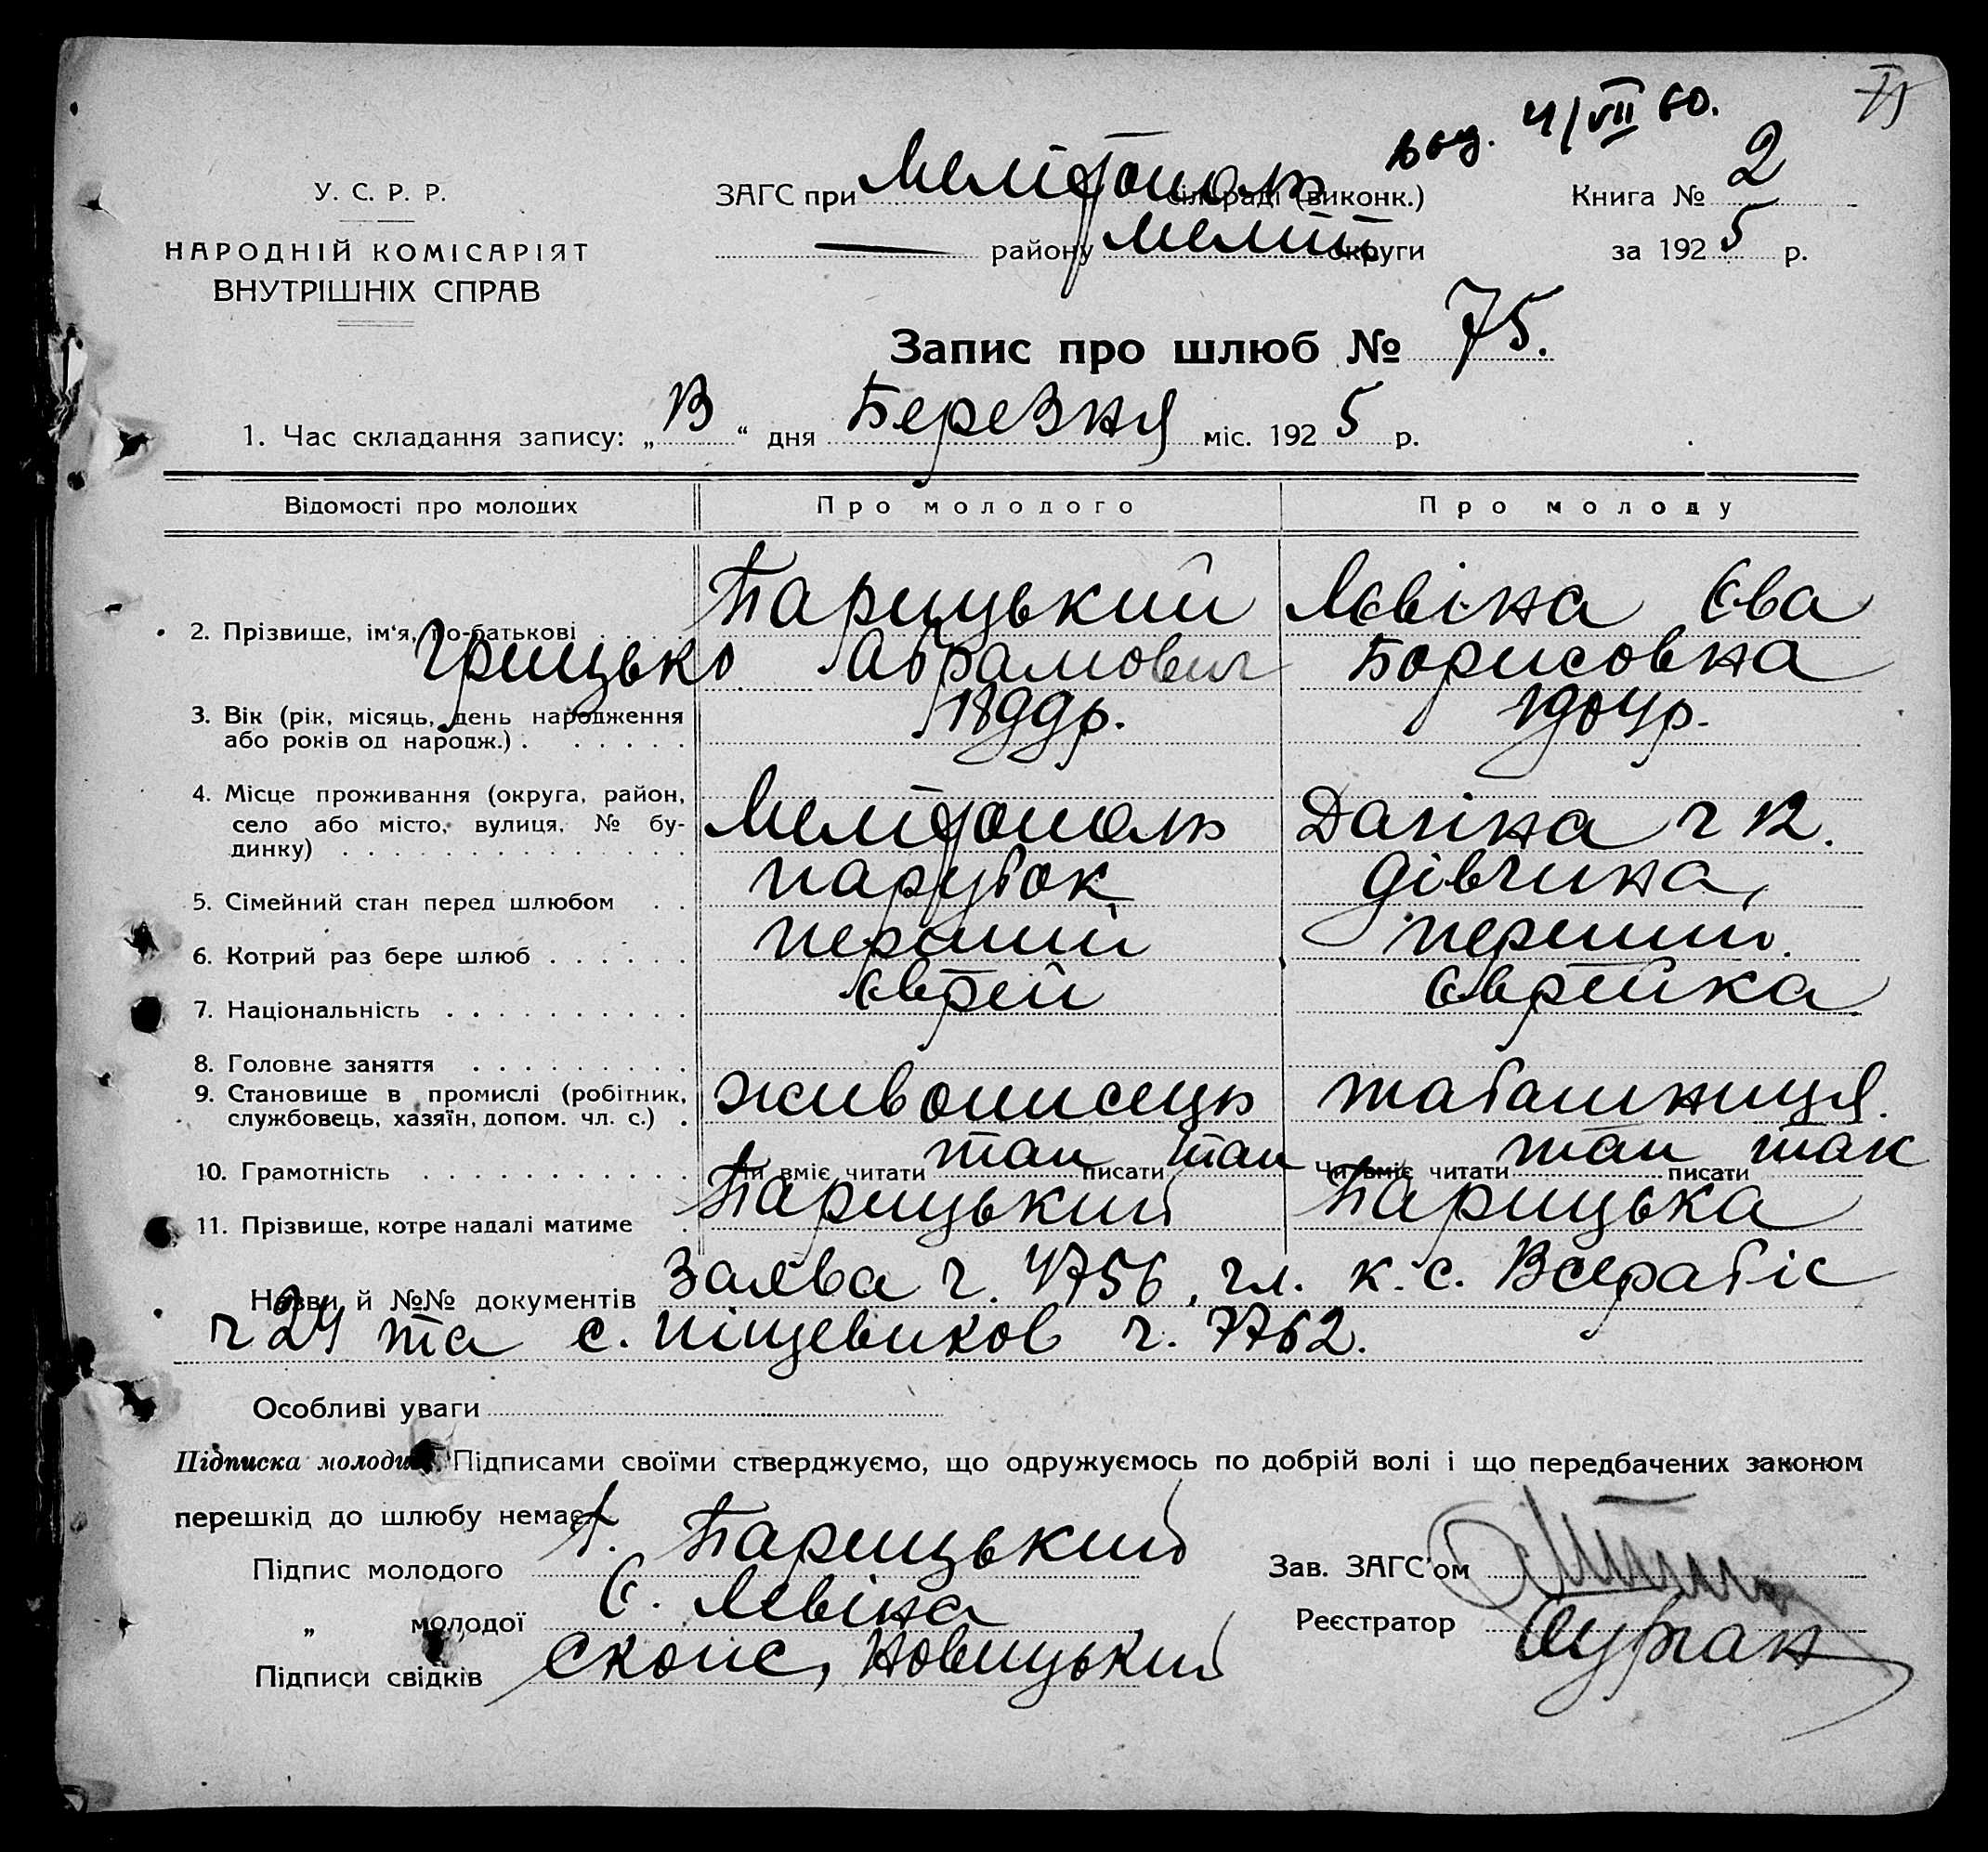 вид. 4/VII 60.
75
У. С. Р. Р.
НАРОДНІЙ КОМІСАРІЯТ
ВНУТРІШНІХ СПРАВ
ЗАГС при Мелітополь сільраді (виконк.)
— району Меліт. округи
Книга № 2
за 1925 р.
Запис про шлюб № 75.
1. Час складання запису: „13“ дня Березня міс. 1925 р.
Відомості про молодих Про молодого Про молоду
2. Прізвище, ім'я, по-батькові . . . . Тарицький Лєвіна Єва
Грицько Абрамович Борисовна
3. Вік (рік, місяць, день народження
або років од народж.) . . . . . . 1899р. 1904р.
4. Місце проживання (округа, район,
село або місто, вулиця, № бу-
динку) . . . . . . . . . . . . . . Мелітополь ч 12.
5. Сімейний стан перед шлюбом . . парубок дівчина,
6. Котрий раз бере шлюб . . . . . . перший перший.
7. Національність . . . . . . . . . . єврей єврейка
8. Головне заняття . . . . . . . . .
9. Становище в промислі (робітник,
службовець, хазяїн, допом. чл. с.) . живописець
10. Грамотність . . . . . . . . . . . Чи вміє читати так писати так Чи вміє читати так писати так
11. Прізвище, котре надалі матиме . Тарицький Тарицька
Назви й №№ документів Заява ч. 4756, чл. к. с. Всерабіс
ч 24 та с. піщевиков ч. 7762.
Особливі уваги
Підписка молодих. Підписами своїми стверджуємо, що одружуємось по добрій волі і що передбачених законом
перешкід до шлюбу немає.
Підпис молодого Тарицький
„ молодої Є. Левіна
Підписи свідків Скопс, Новицький
Зав. ЗАГС'ом
Реєстратор